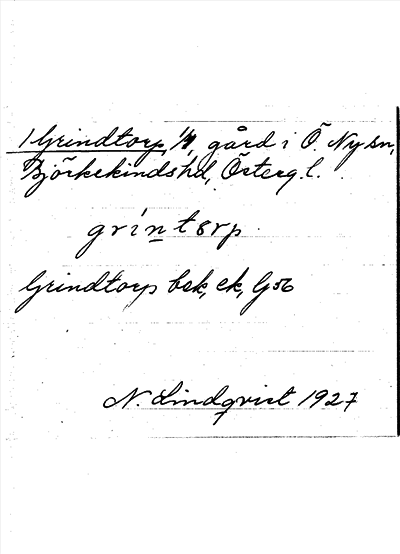 1 Grindtorp, 1/1, gård i Ö. Ny sn,
Björkekinds hd, Österg.l.
grintorp.
Grindtorp bsk, ek, G56
N. Lindqvist 1927